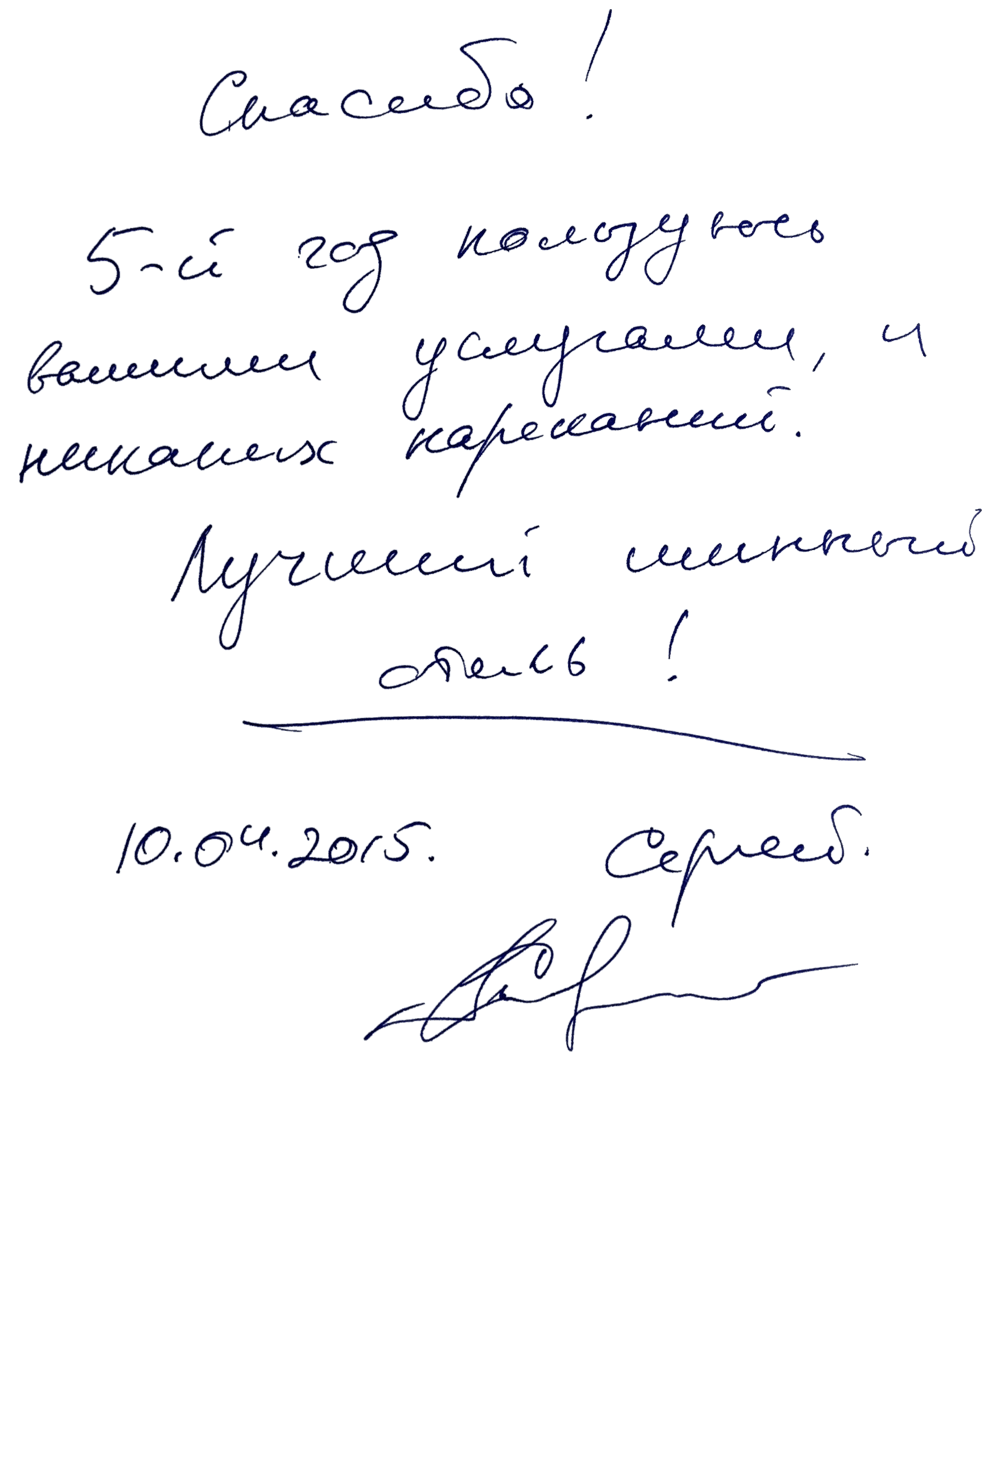 Спасибо!
5-й год пользуюсь
вашими услугами, и
никаких нареканий.
Лучший шинный
отель!
10.04.2015. Сергей.